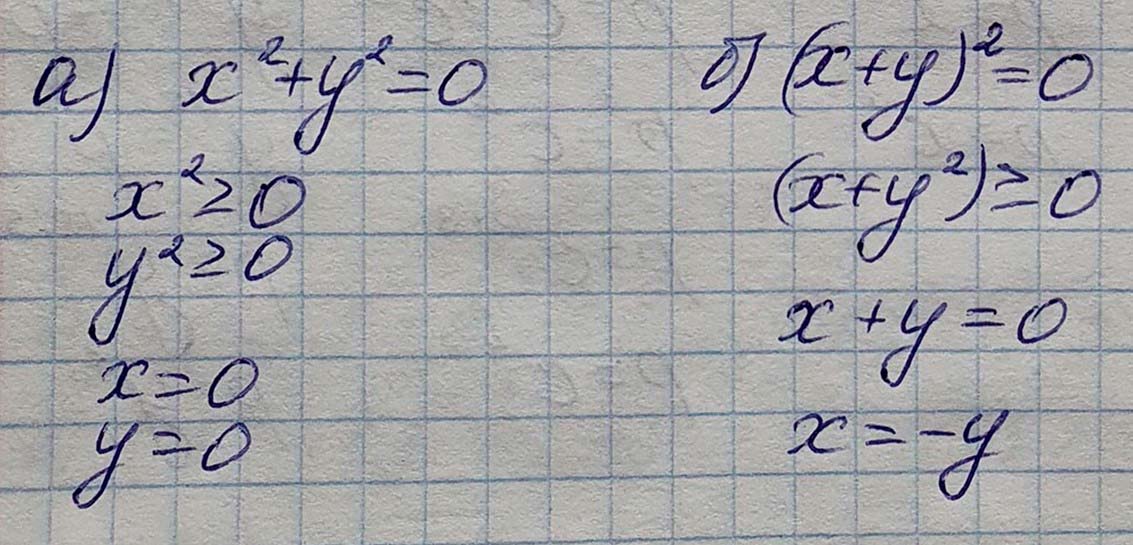 а) x²+y²=0
x²≥0
y²≥0
x=0
y=0
б) (x+y)²=0
(x+y²)≥0
x+y=0
x=-y